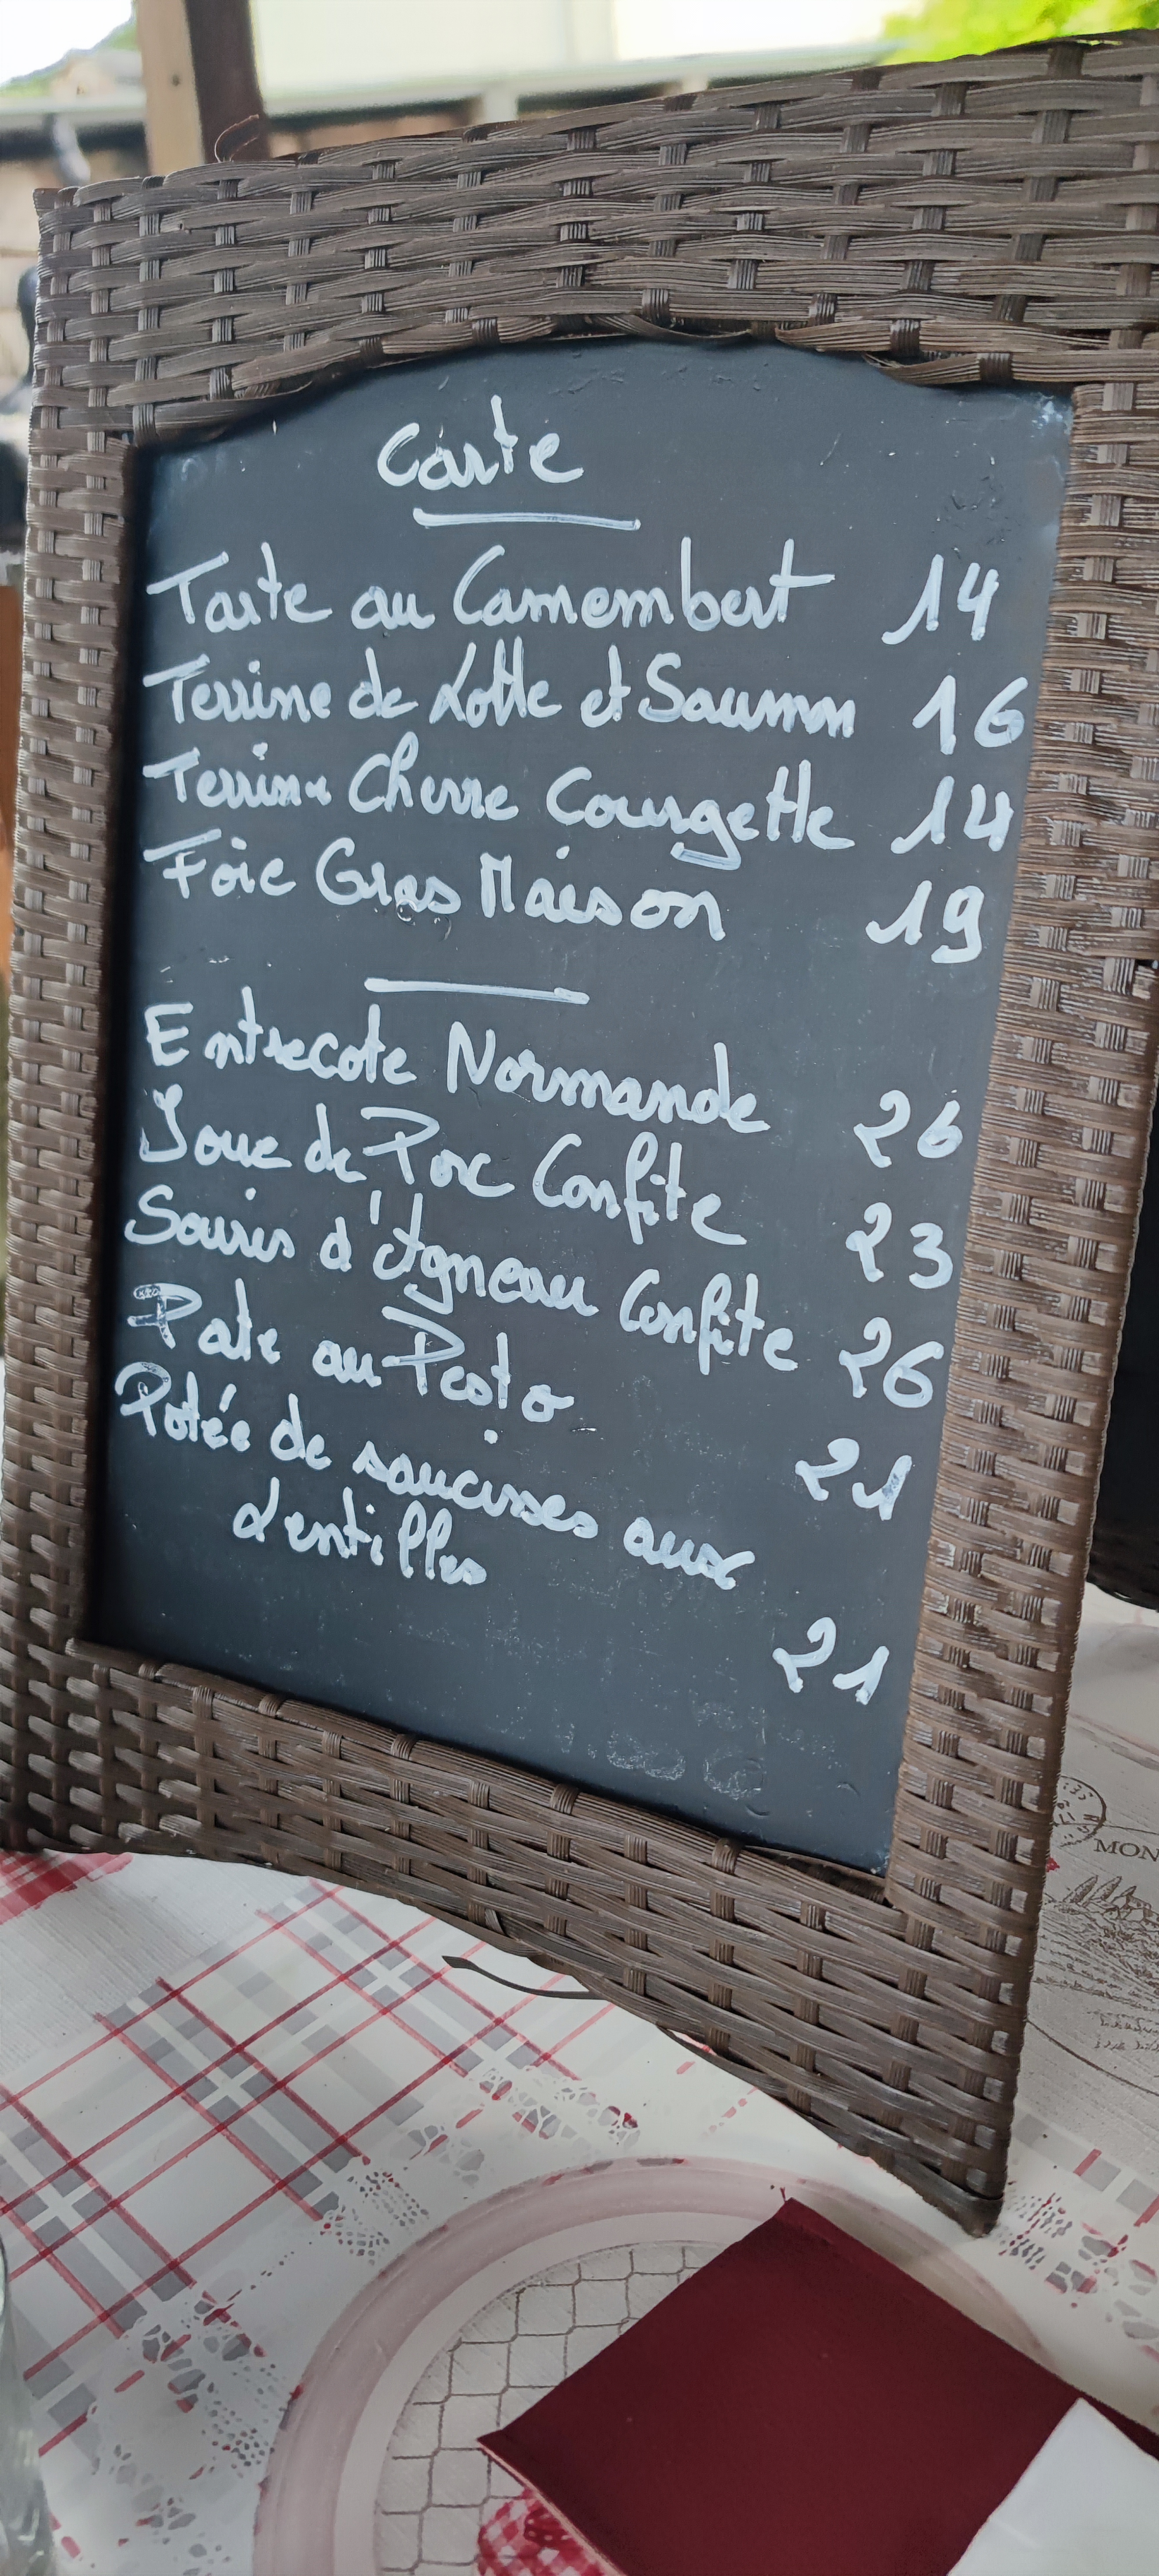 Carte
Tarte au Camembert 14
Terrine de Lotte et Saumon 16
Terrine Chevre Courgette 14
Foie Gras Maison 19
Entrecote Normande 26
Joue de Porc Confite 23
Souris d'Agneau Confite 26
Pate au Pesto 21
Potée de saucisses aux
Lentilles
21
MON